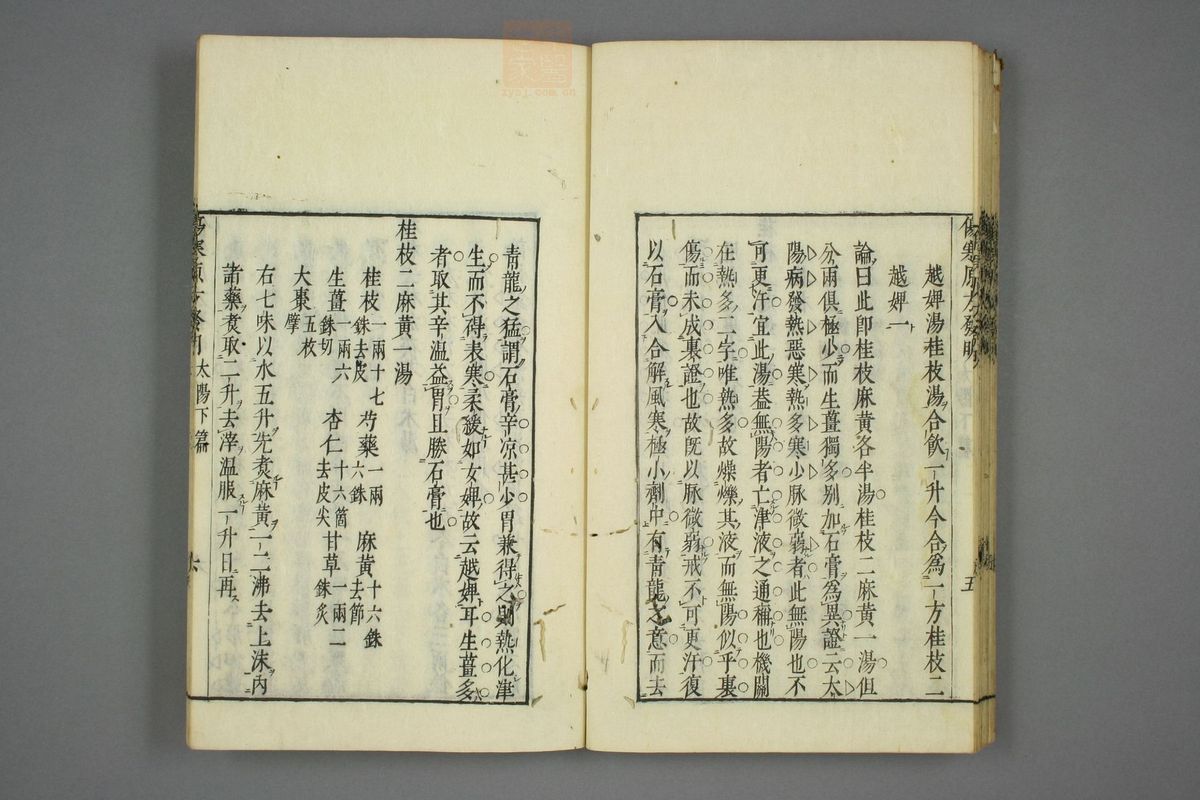 傷寒
五
越婢湯桂枝湯合飲一升今合為一方桂枝二
越婢一
論曰此即桂枝麻黃各半湯桂枝二麻黃一湯但
分兩俱極少而生薑獨多別加石膏為異證云太
陽病發熱惡寒熱多寒少脉微弱者此無陽也不
可更汗宜此湯葢無陽者亡津液之通稱也機關
在熱多二字唯熱多故爍爍其液而無陽似乎裏
傷而未成裏證也故既以脉微弱戒不可更汗復
以石膏入合解風寒極小劑中有青龍之意而去
青龍之猛謂石膏辛凉甚少胃兼得之則熱化津
生而不得表寒柔緩如女婢故云越婢耳生薑多
者取其辛温益胃且勝石膏也
桂枝二麻黃一湯
桂枝一兩十七銖去皮 芍藥一兩六銖 麻黃十六銖去節
生薑一兩六銖切 杏仁十六箇去皮尖 甘草一兩二銖炙
大棗五枚擘
右七味以水五升先煑麻黃一二沸去上沫內
諸藥煑取二升去滓温服一升日再
太陽下篇
六
zysj.com.cn